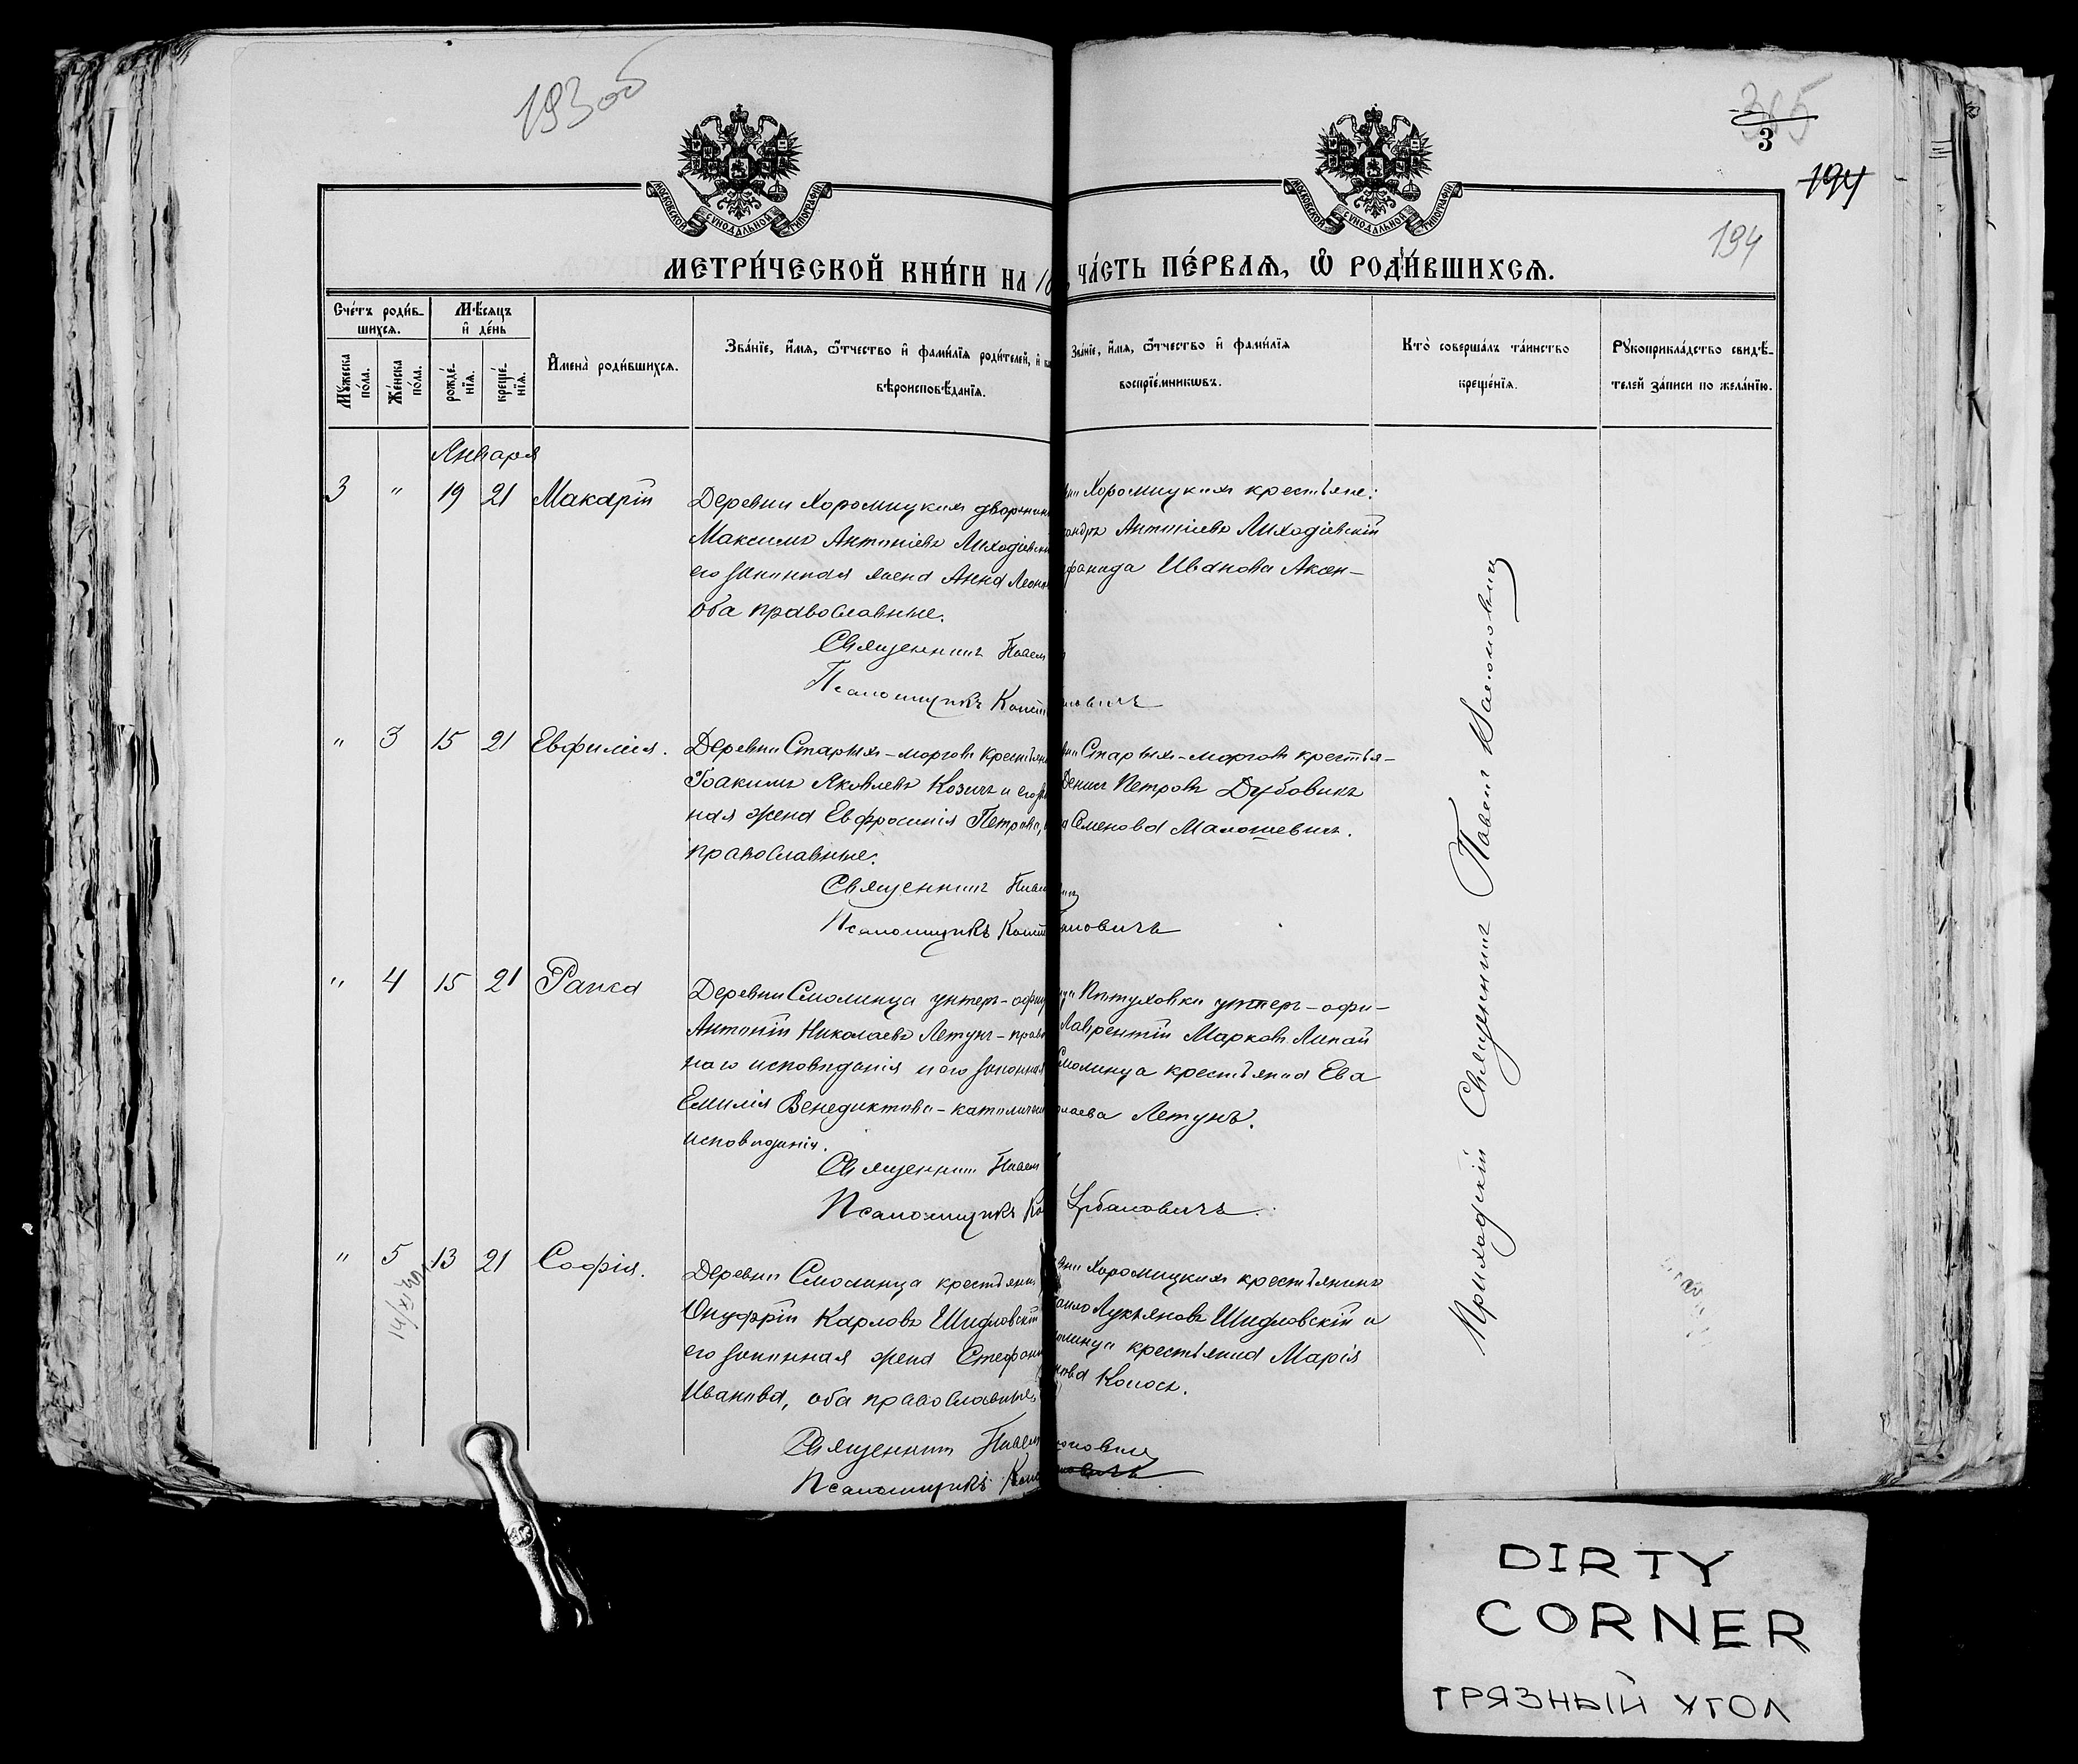 193 об
365
3
194
194
МОСКОВСКОЙ СѴНОДАЛЬНОЙ ТИПОГРАФІИ
МОСКОВСКОЙ СѴНОДАЛЬНОЙ ТИПОГРАФІИ
МЕТРИ́ЧЕСКОЙ КНИ́ГИ НА 18
ЧА́СТЬ ПЕ́РВАЯ, Ѡ РОДИ́ВШИХСЯ.
Сче́тъ роди́в-
шихся.
Мѣсяцъ
и де́нь
Мꙋжеска
по́ла.
Же́нска
по́ла.
рожде́-
нїя.
креще́-
нїя.
Имена̀ роди́вшихся.
Зва́нїе, и́мя, ѻ́тчество и фами́лїя роди́телей, и
вѣроисповѣ́данїя.
Зва́нїе, и́мя, ѻ́тчество и фами́лїя
воспрїе́мникѡвъ.
Кто̀ соверша́лъ та́инство
креще́нїя.
Рꙋкоприкла́дство свидѣ́-
телей за́писи по жела́нїю.
Января
3 " 19 21 Макарій
Деревни Хоромицкихъ дворянинъ
Максимъ Антоніевъ Лиходіевскі
его законная жена Анна Леон
оба православные.
Священникъ Павел
Псаломщикъ Конст
ни Хоромицкихъ крестьяне:
андръ Антоніевъ Лиходіевскій
фанида Иванова Аксен-
новичъ
" 3 15 21 Евфимія.
Деревни Старыхъ-морговъ крестьян
Іоакимъ Яковлевъ Козичъ и его за
ная жена Евфросинія Петрова,
православные.
Священникъ Павел
Псаломщикъ Конст
ни Старыхъ-морговъ крестья-
Денисъ Петровъ Дубовикъ
Семенова Малошевичъ.
ановичъ
" 4 15 21 Раиса
Деревни Смолинца унтеръ-офиц
Антоній Николаевъ Летунъ-прав
наго исповѣданія и его законная
Емилія Венедиктова-католическ
исповѣданія.
Священникъ Павел
Псаломщикъ Ко
Пѣтуховки унтеръ-офи-
Лаврентій Марковъ Липай
Смолинца крестьянка Ева
лаева Летунъ.
Урбановичъ.
" 5 13 21 Софія.
14/XI 40 г.
Деревни Смолинца крестьянин
Онуфрій Карловъ Шидловскій
его законная жена Стефан
Иванова, оба православные
Священникъ Павел
Псаломщикъ Конс
ни Хоромицкихъ крестьянинъ
аило Лукьяновъ Шидловскій и
олинца крестьянка Марія
нова Колосъ.
оновичъ
новичъ
Приходскій Священникъ Павелъ
DIRTY
CORNER
ГРЯЗНЫЙ УГОЛ